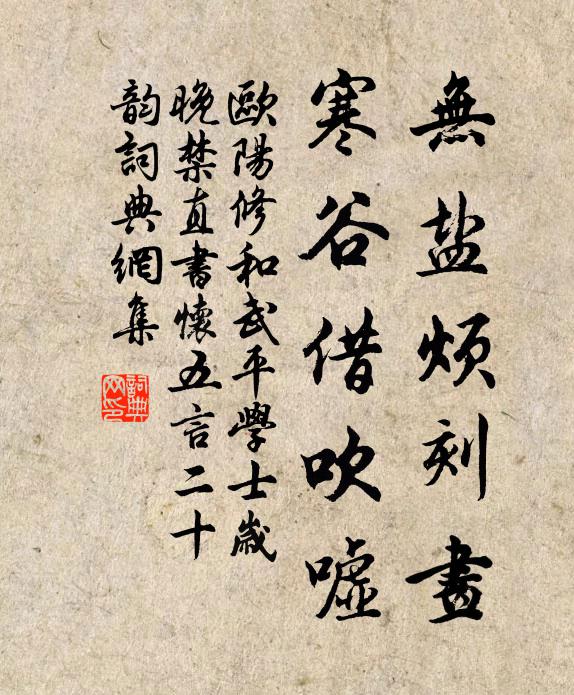 無盐煩刻畫
寒谷借吹噓
歐陽修和武平學士歲
晚禁直書懷五言二十
韵詞典網集
詞典
网印